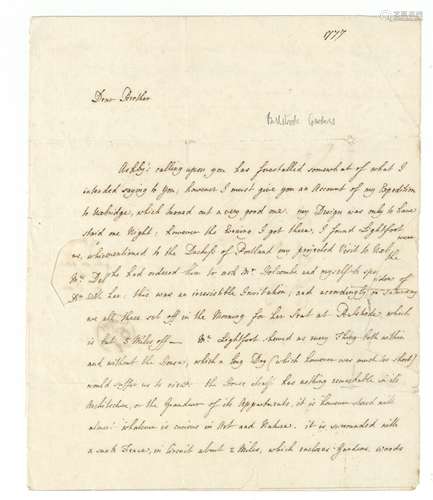 1777
Dear Brother
Bulstrode Gardens
Ashby's calling upon you has forestalled somewhat of what I
intended saying to You; however I must give you an Account of my Expedition
to Uxbridge, which turned out a very good one. my Design was only to have
staid one Night; however the Evening I got there, I found Lightfoot
mentioned to the Dutchess of Portland my projected Visit to
she had ordered him to ask Mr. and myself to
her; this was an irresistible Invitation; and accordingly on Saturday
we all three set off in the Morning for her Seat at Bulstrode, which
is but 5 Miles off — Mr. Lightfoot shewed us every Thing both within
and without the House, which a long Day (which however was much too short)
would suffer us to view. the House itself has nothing remarkable in its
Architecture, or the Grandeur of its Appartments, it is however stored with
almost whatever is curious in Art and Nature. it is surrounded with
a sunk Fence, in Circuit about 2 Miles, which encloses Gardens, Woods